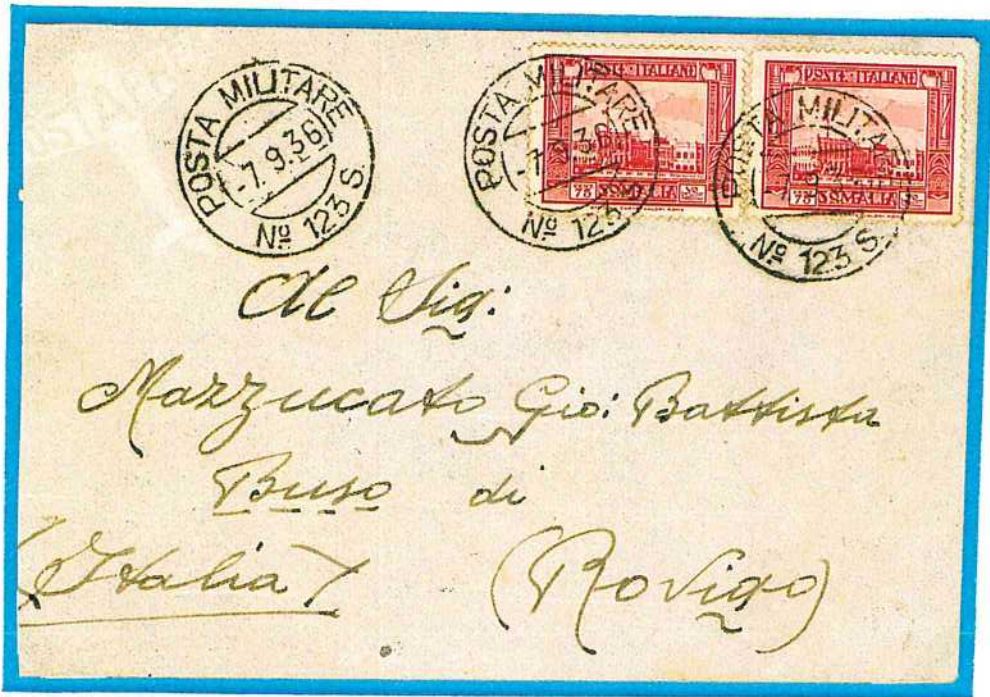 POSTA MILITARE
-7.9.36
Nº 123 S.
POSTA MILITARE
-7.9.36
Nº 123 S.
POSTE ITALIANE
SOMALIA
POSTA MILITARE
Nº 123 S.
POSTE ITALIANE
SOMALIA
Al Sig:
Mazzucato Gio: Battista
Buso di
(Italia) (Rovigo)